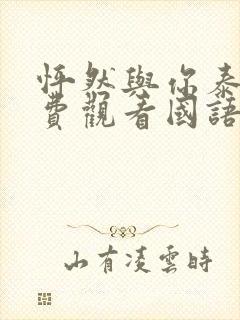 怦然與你泰
費觀看國語
山有凌雲時